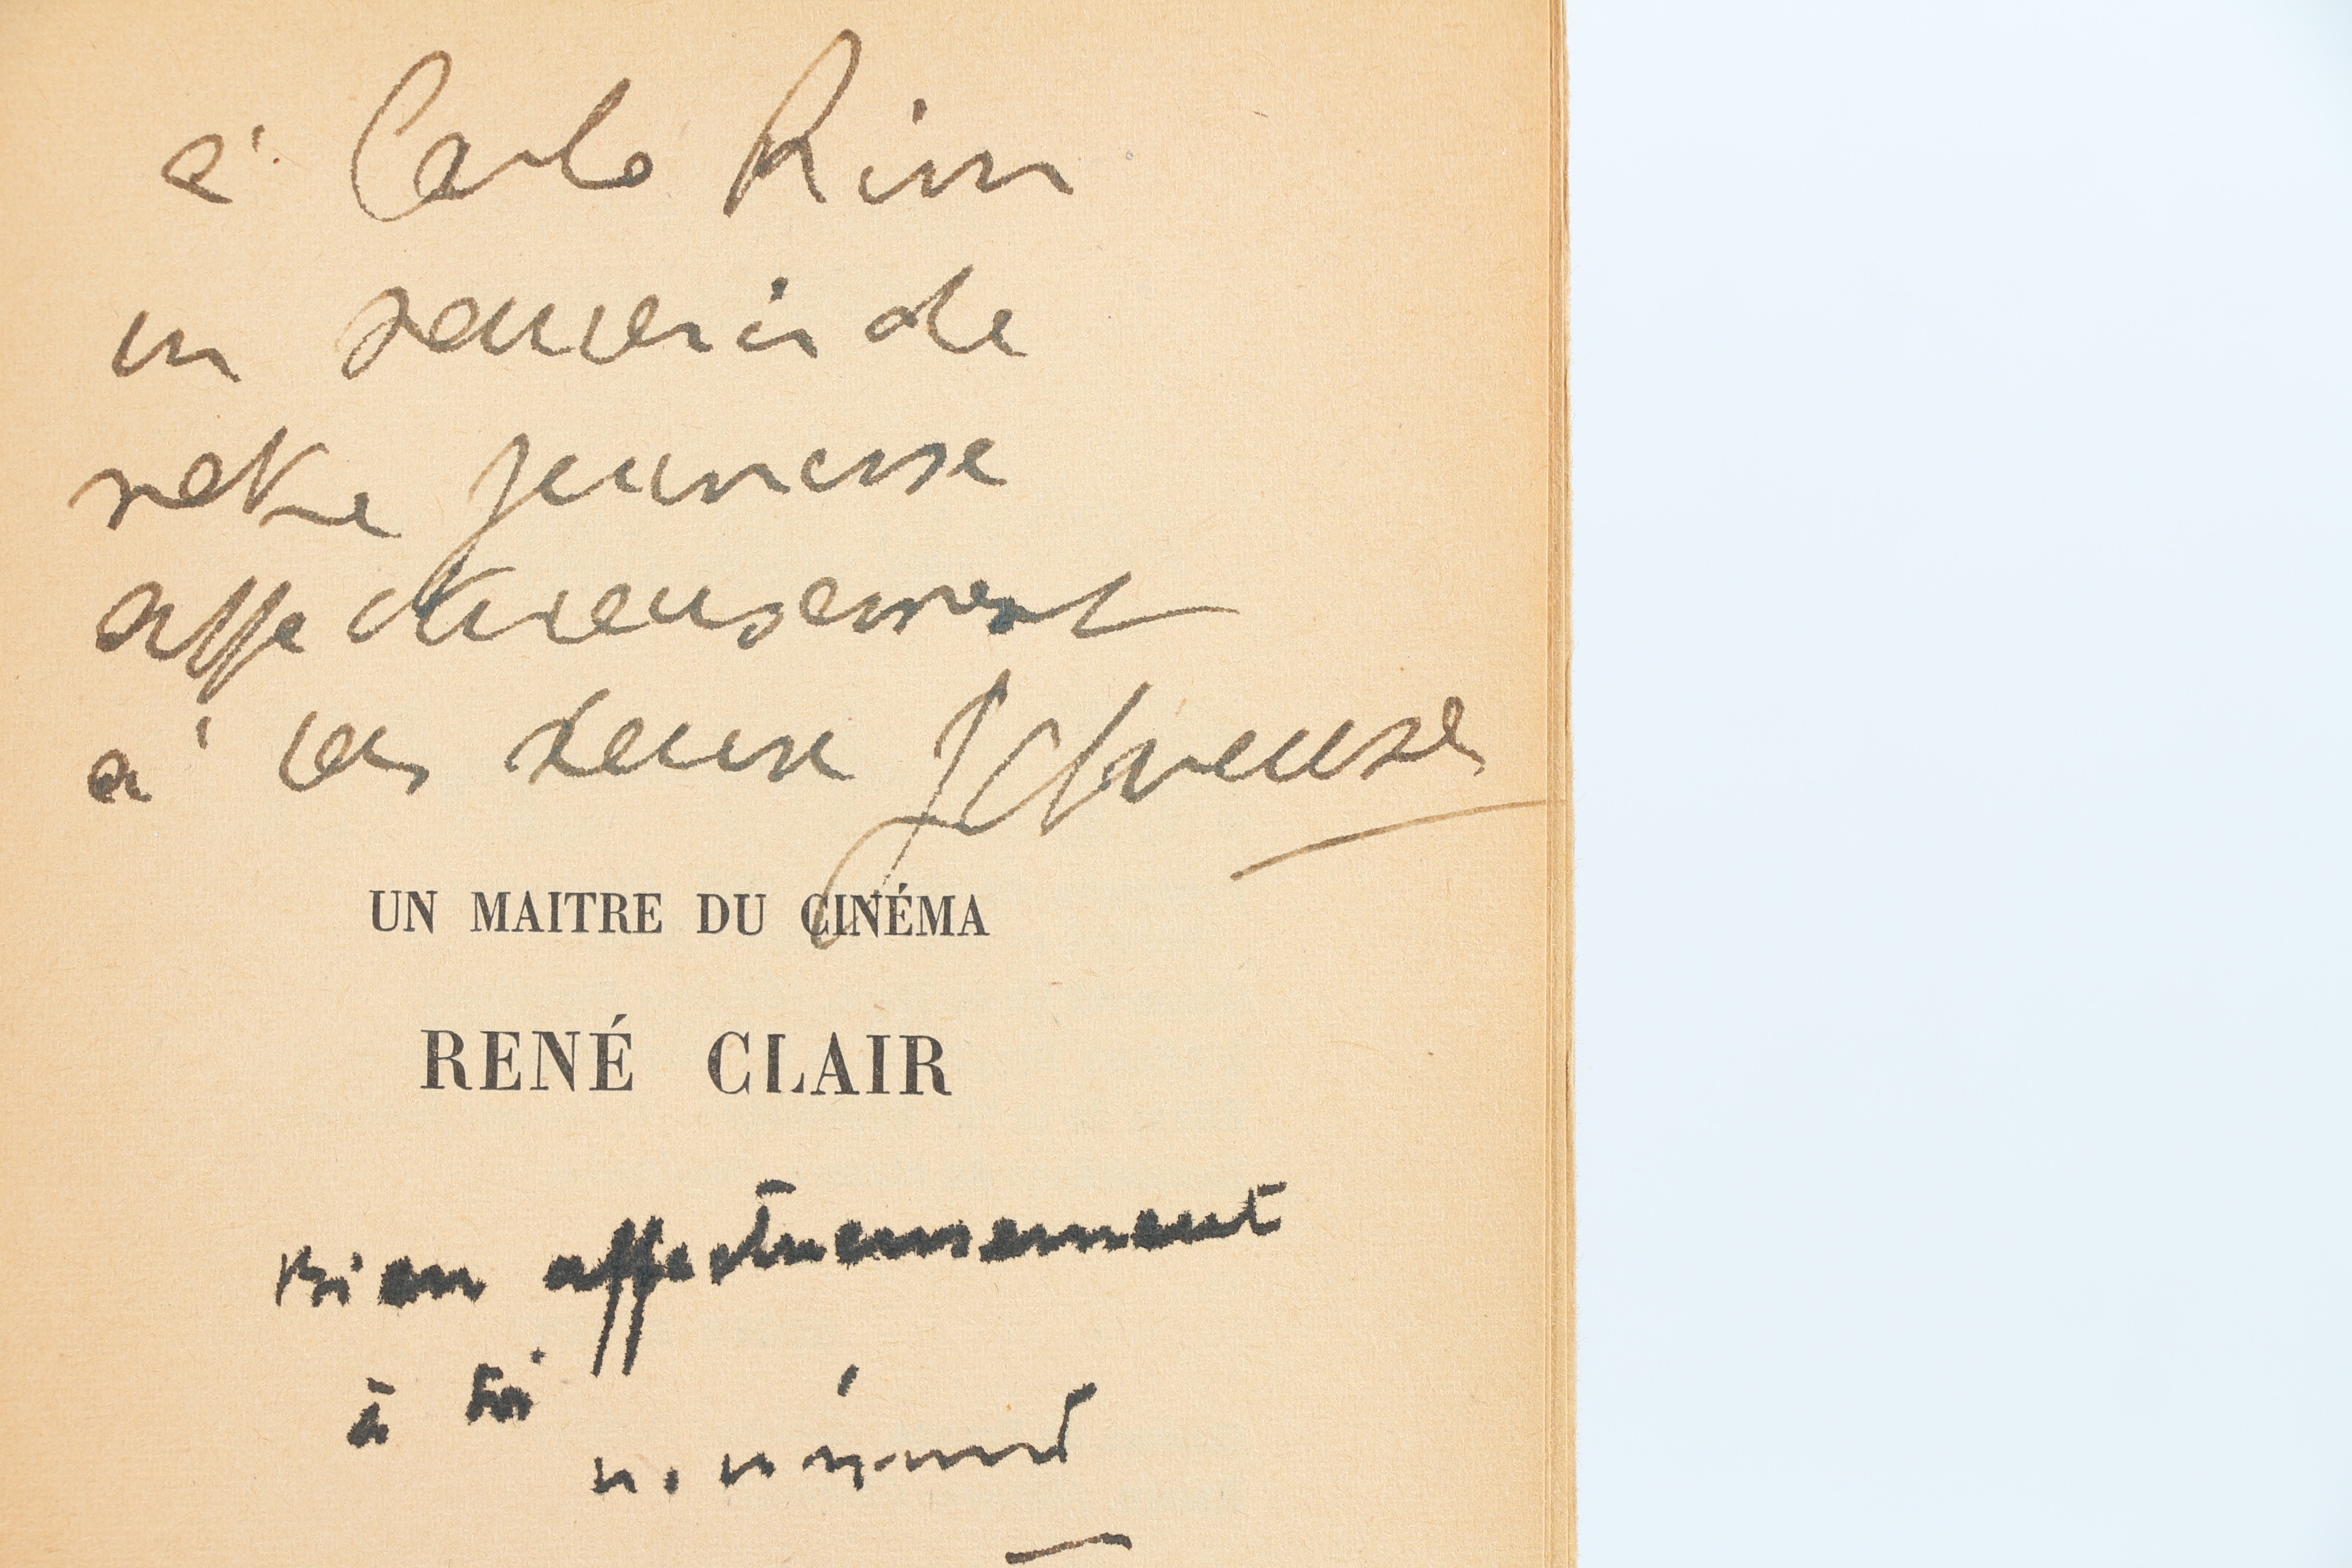 à Carlo Rim
un souvenir de
notre jeunesse
affectueusement
à vous deux JCharensol
UN MAITRE DU CINÉMA
RENÉ CLAIR
Bien affectueusement
à toi